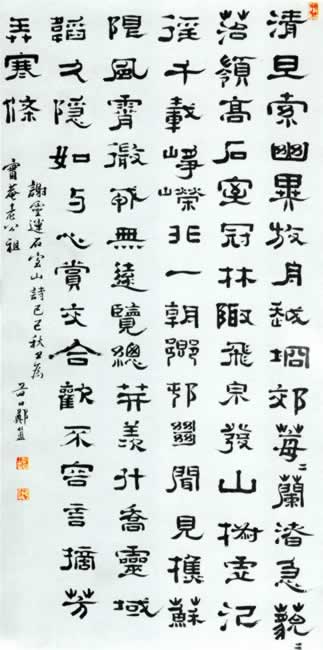 清旦索幽異放舟越坰郊莓〻蘭渚急藐〻
苔嶺高石室冠林陬飛泉發山椒虛泛
徑千載崢嶸非一朝鄉邨絕聞見樵蘇
限風霄微戎無遠覽總笄羨升喬靈域
韜久隱如与心賞交合歡不容言摘芳
弄寒條
謝靈運石室山詩己巳秋日為
寶菴老公祖
谷口鄭簠